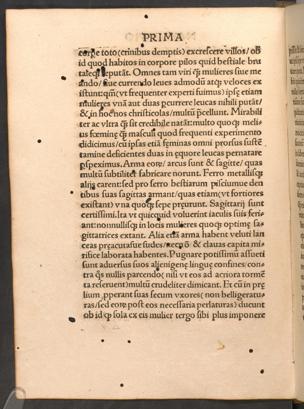 PRIMA
corpe toto (crinibus demptis) excrescere villos / ob
id quod habitos in corpore pilos quid bestiale bru
taleq; reputāt. Omnes tam viri q̄ mulieres siue me
ando / siue currendo leues admodū atq; veloces ex
istunt: qm̄ (vt frequenter experti fuimus) ipsę etiam
mulieres vnā aut duas pcurrere leucas nihili putāt /
& in hoc nos christicolas / multū pcellunt. Mirabili
ter ac vltra q̄ sit credibile natāt: multo quoq; meli
us fœminę q̄ masculi quod frequenti experimento
didicimus / cū ipsas etiā fęminas omni prorsus suste
tamine deficientes duas in equore leucas pernatare
pspeximus. Arma eorū / arcus sunt & sagittę / quas
multū subtiliter fabricare norunt. Ferro metallisq;
alijs carent: sed pro ferro bestiarum pisciumue den
tibus suas sagittas armant / quas etiam (vt fortiores
existant) vna quoq; sepe pręurunt. Sagittarij sunt
certissimi. ita vt quicquid voluerint iaculis suis feri
ant: nonnullisq; in locis mulieres quoq; optimę sa
gittatrices extant. Alia etiā arma habent veluti lan
ceas pręacutasue sudes / necnō & clauas capita mi
rifice laborata habentes. Pugnare potissimū assueti
sunt aduersus suos alienigenę linguę confines: con
tra q̄s nullis parcendo / nisi vt eos ad acriora tormē
ta reseruent / multū crudeliter dimicant. Et cū in prę
lium pperant suas secum vxores (non belligeratu
ras / sed eorū post eos necessaria perlaturas) ducunt
ob id q̄ sola ex eis mulier tergo sibi plus imponere